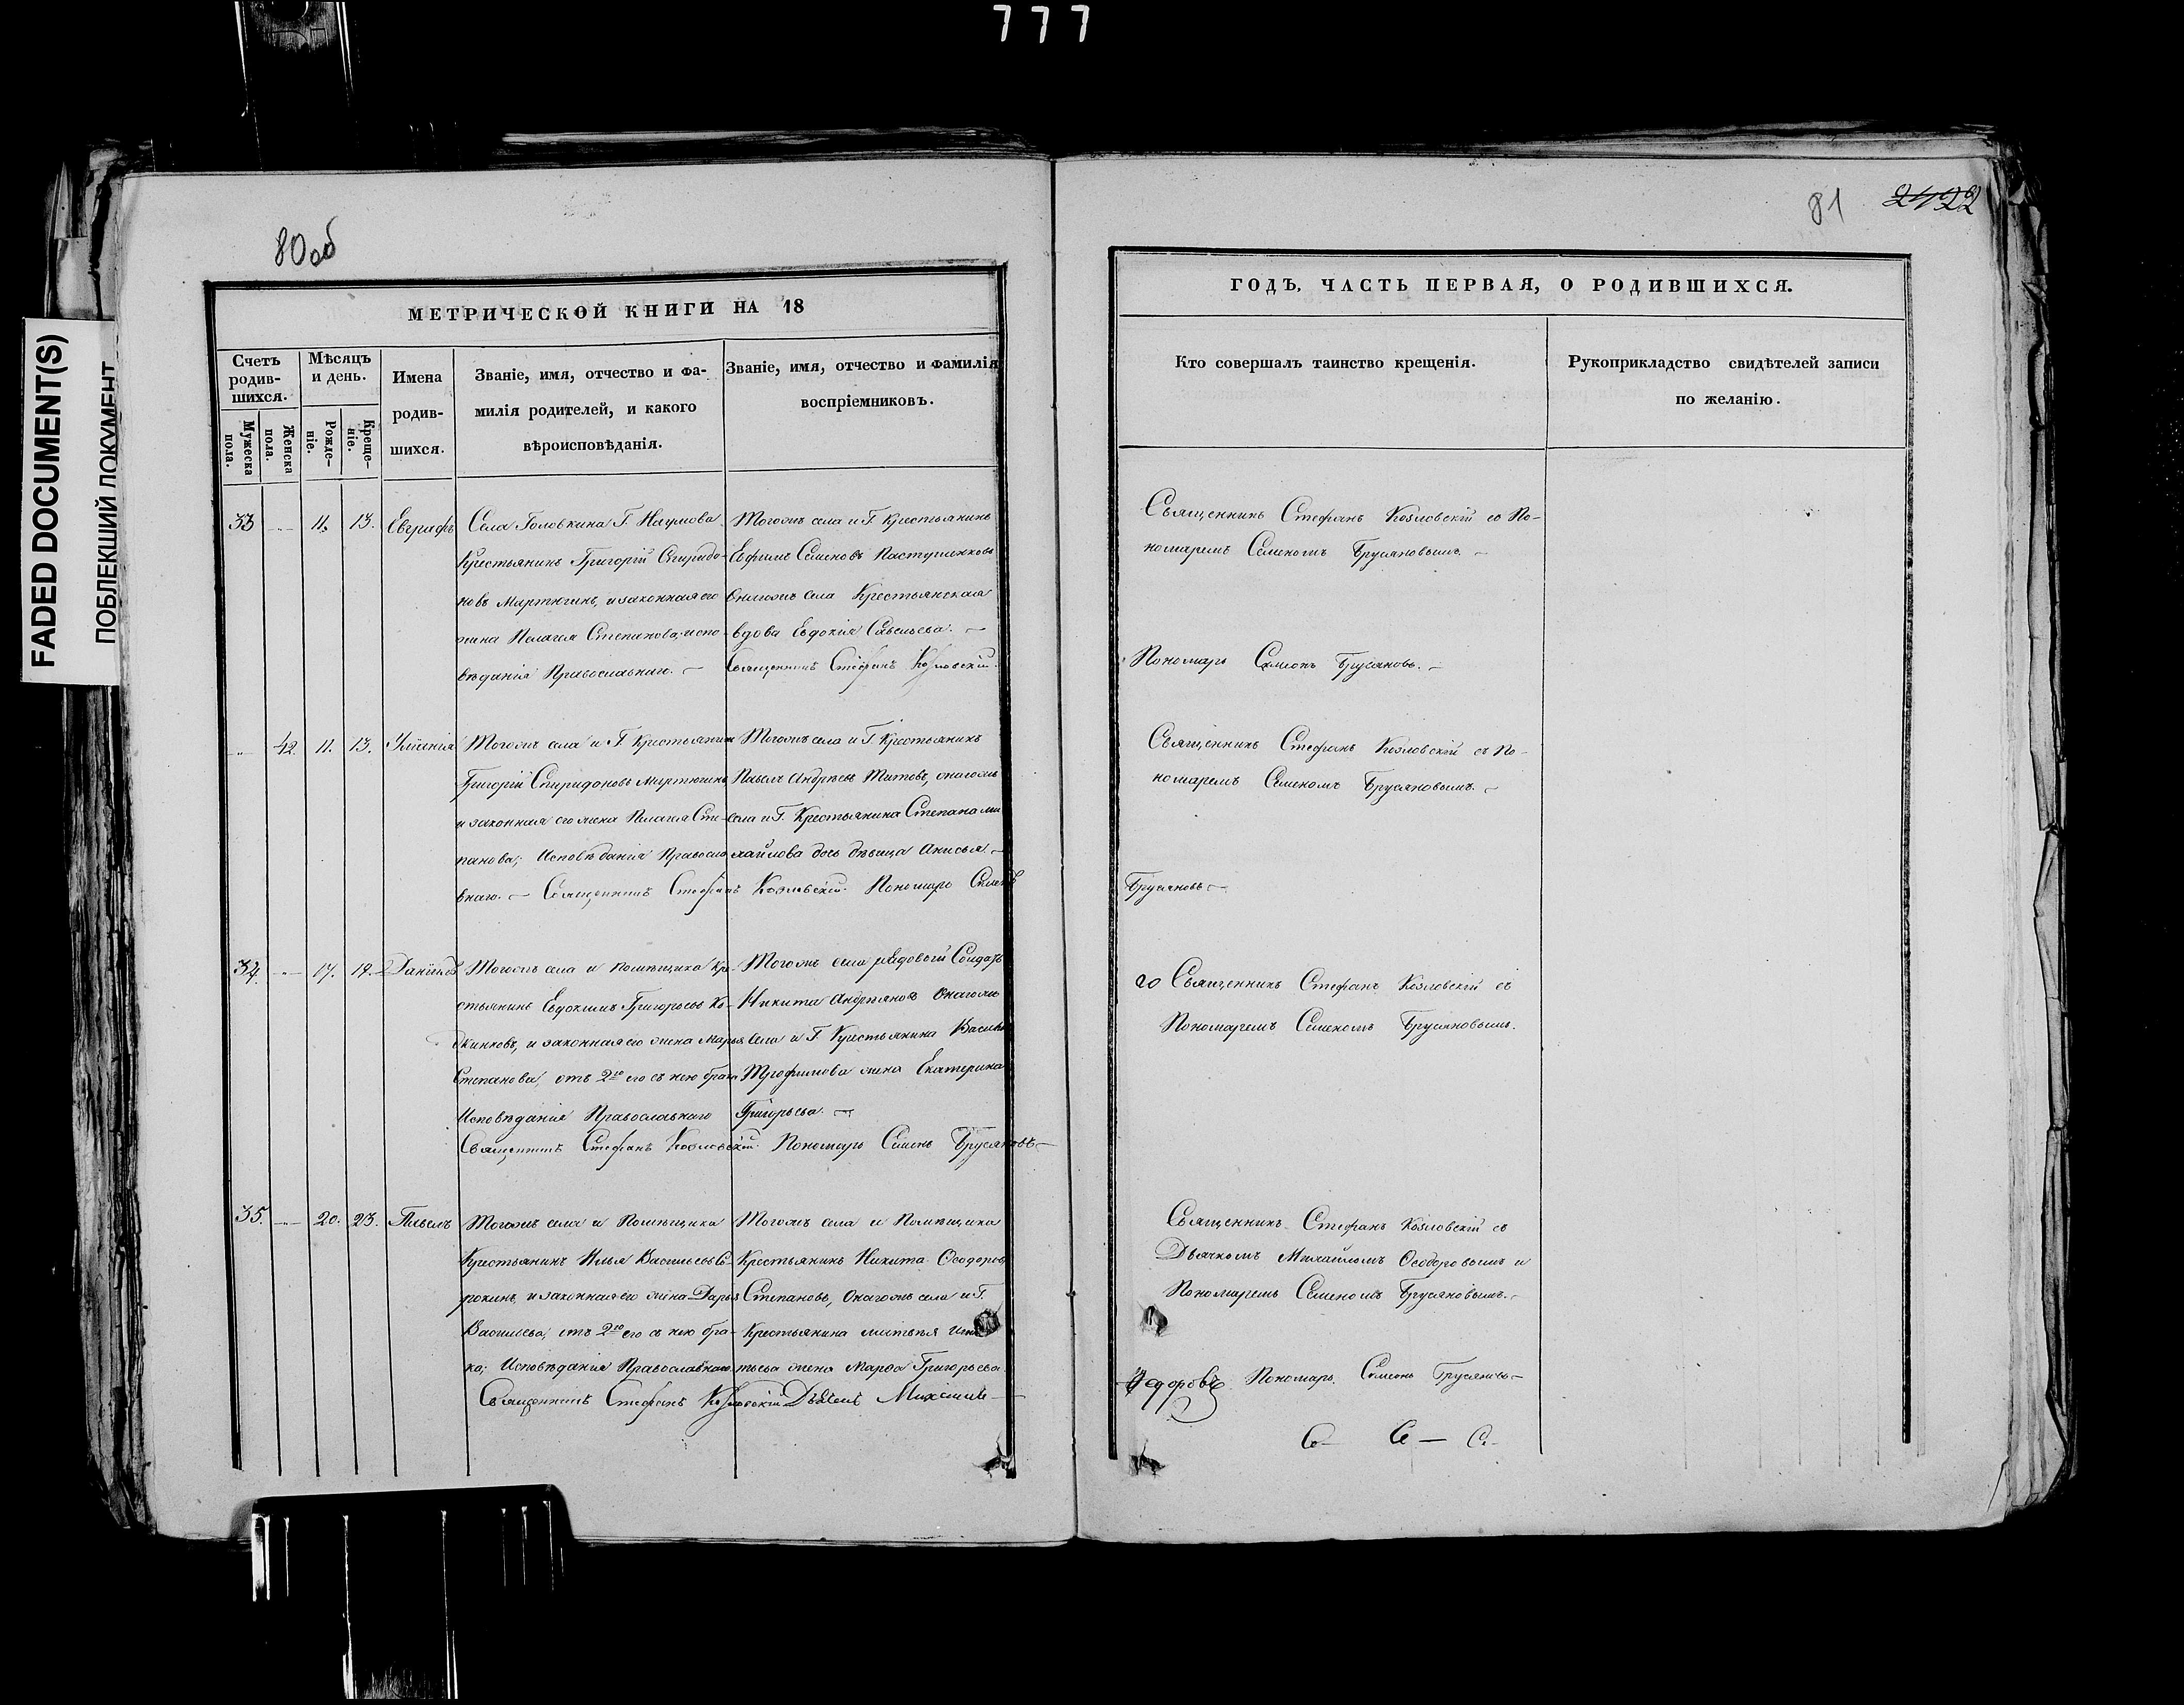 777
FADED DOCUMENT(S)
ПОБЛЕКШИЙ ДОКУМЕНТ
80об
МЕТРИЧЕСКОЙ КНИГИ НА 18
Счетъ родив-шихся.
Мужеска пола.
Женска пола.
Мѣсяцъ и день.
Рожде-ніе.
Креще-ніе.
Имена родив-шихся.
Званіе, имя, отчество и фа-
милія родителей, и какого
вѣроисповѣданія.
Званіе, имя, отчество и фамилія
воспріемниковъ.
33 11. 13. Евграфъ
Села Головкина Г. Наумова
Крестьянинъ Григорій Спиридо-
новъ Мартюгинъ, и законная его
жена Пелагея Степанова; испо-
вѣданія Православнаго. —
Тогожъ села и Г. Крестьянинъ
Ефимъ Семеновъ
Оногожъ села Крестьянская
вдова Евдокія Савельева. —
Священникъ Стефанъ Козловскій.
42. 11. 13.
Тогожъ села и Г. Крестьянинъ
Григорій Спиридоновъ Мартюгинъ,
и законная его жена Пелагея Сте-
панова; Исповѣданія Правосла-
внаго. — Священникъ Стефанъ Козловскій. Пономарь Семенъ
Тогожъ села и Г. Крестьянинъ
Павелъ Андреевъ Титовъ, оногожъ
села и Г. Крестьянина Степана Ми-
хайлова дочь дѣвица Анисья. —
34. 17. 19. Даніилъ
Тогожъ села и Помѣщика Кре-
стьянинъ Евдокимъ Григорьевъ
и законная его жена Марья
Степанова, отъ 2го его съ нею брака
Исповѣданія Православнаго
Священникъ Стефанъ Козловскій. Пономарь Семенъ Брусяновъ —
Тогожъ села рядовой Солдатъ
Никита Андреяновъ Оногожъ
села и Г. Крестьянина Василья
Трофимова жена Екатерина
Григорьева. —
35. 20. 23. Павелъ
Тогожъ села и Помѣщика
Крестьянинъ Илья Васильевъ Со-
рокинъ, и законная его жена Дарья
Васильева, отъ 2го его съ нею бра-
ка; Исповѣданія Православнаго.
Священникъ Стефанъ Козловскій Дьячекъ Михаилъ
Тогожъ села и Помѣщика
Крестьянинъ Никита Ѳеодоровъ
Степановъ, Оногожъ села и Г.
Крестьянина Матвѣя Игна-
тьева жена Марѳа Григорьева.
81 2422
ГОДЪ, ЧАСТЬ ПЕРВАЯ, О РОДИВШИХСЯ.
Кто совершалъ таинство крещенія.
Рукоприкладство свидѣтелей записи
по желанію.
Священникъ Стефанъ Козловскій со По-
номаремъ Семеномъ Брусяновымъ. —
Пономарь Симеонъ Брусяновъ. —
Священникъ Стефанъ Козловскій съ По-
номаремъ Семеномъ Брусяновымъ. —
Брусяновъ —
Священникъ Стефанъ Козловскій съ
Пономаремъ Семеномъ Брусяновымъ.
Священникъ Стефанъ Козловскій со
Дьячкомъ Михаиломъ Ѳеодоровымъ и
Пономаремъ Семеномъ Брусяновымъ. —
Федоровъ Пономарь Симеонъ Брусяновъ —